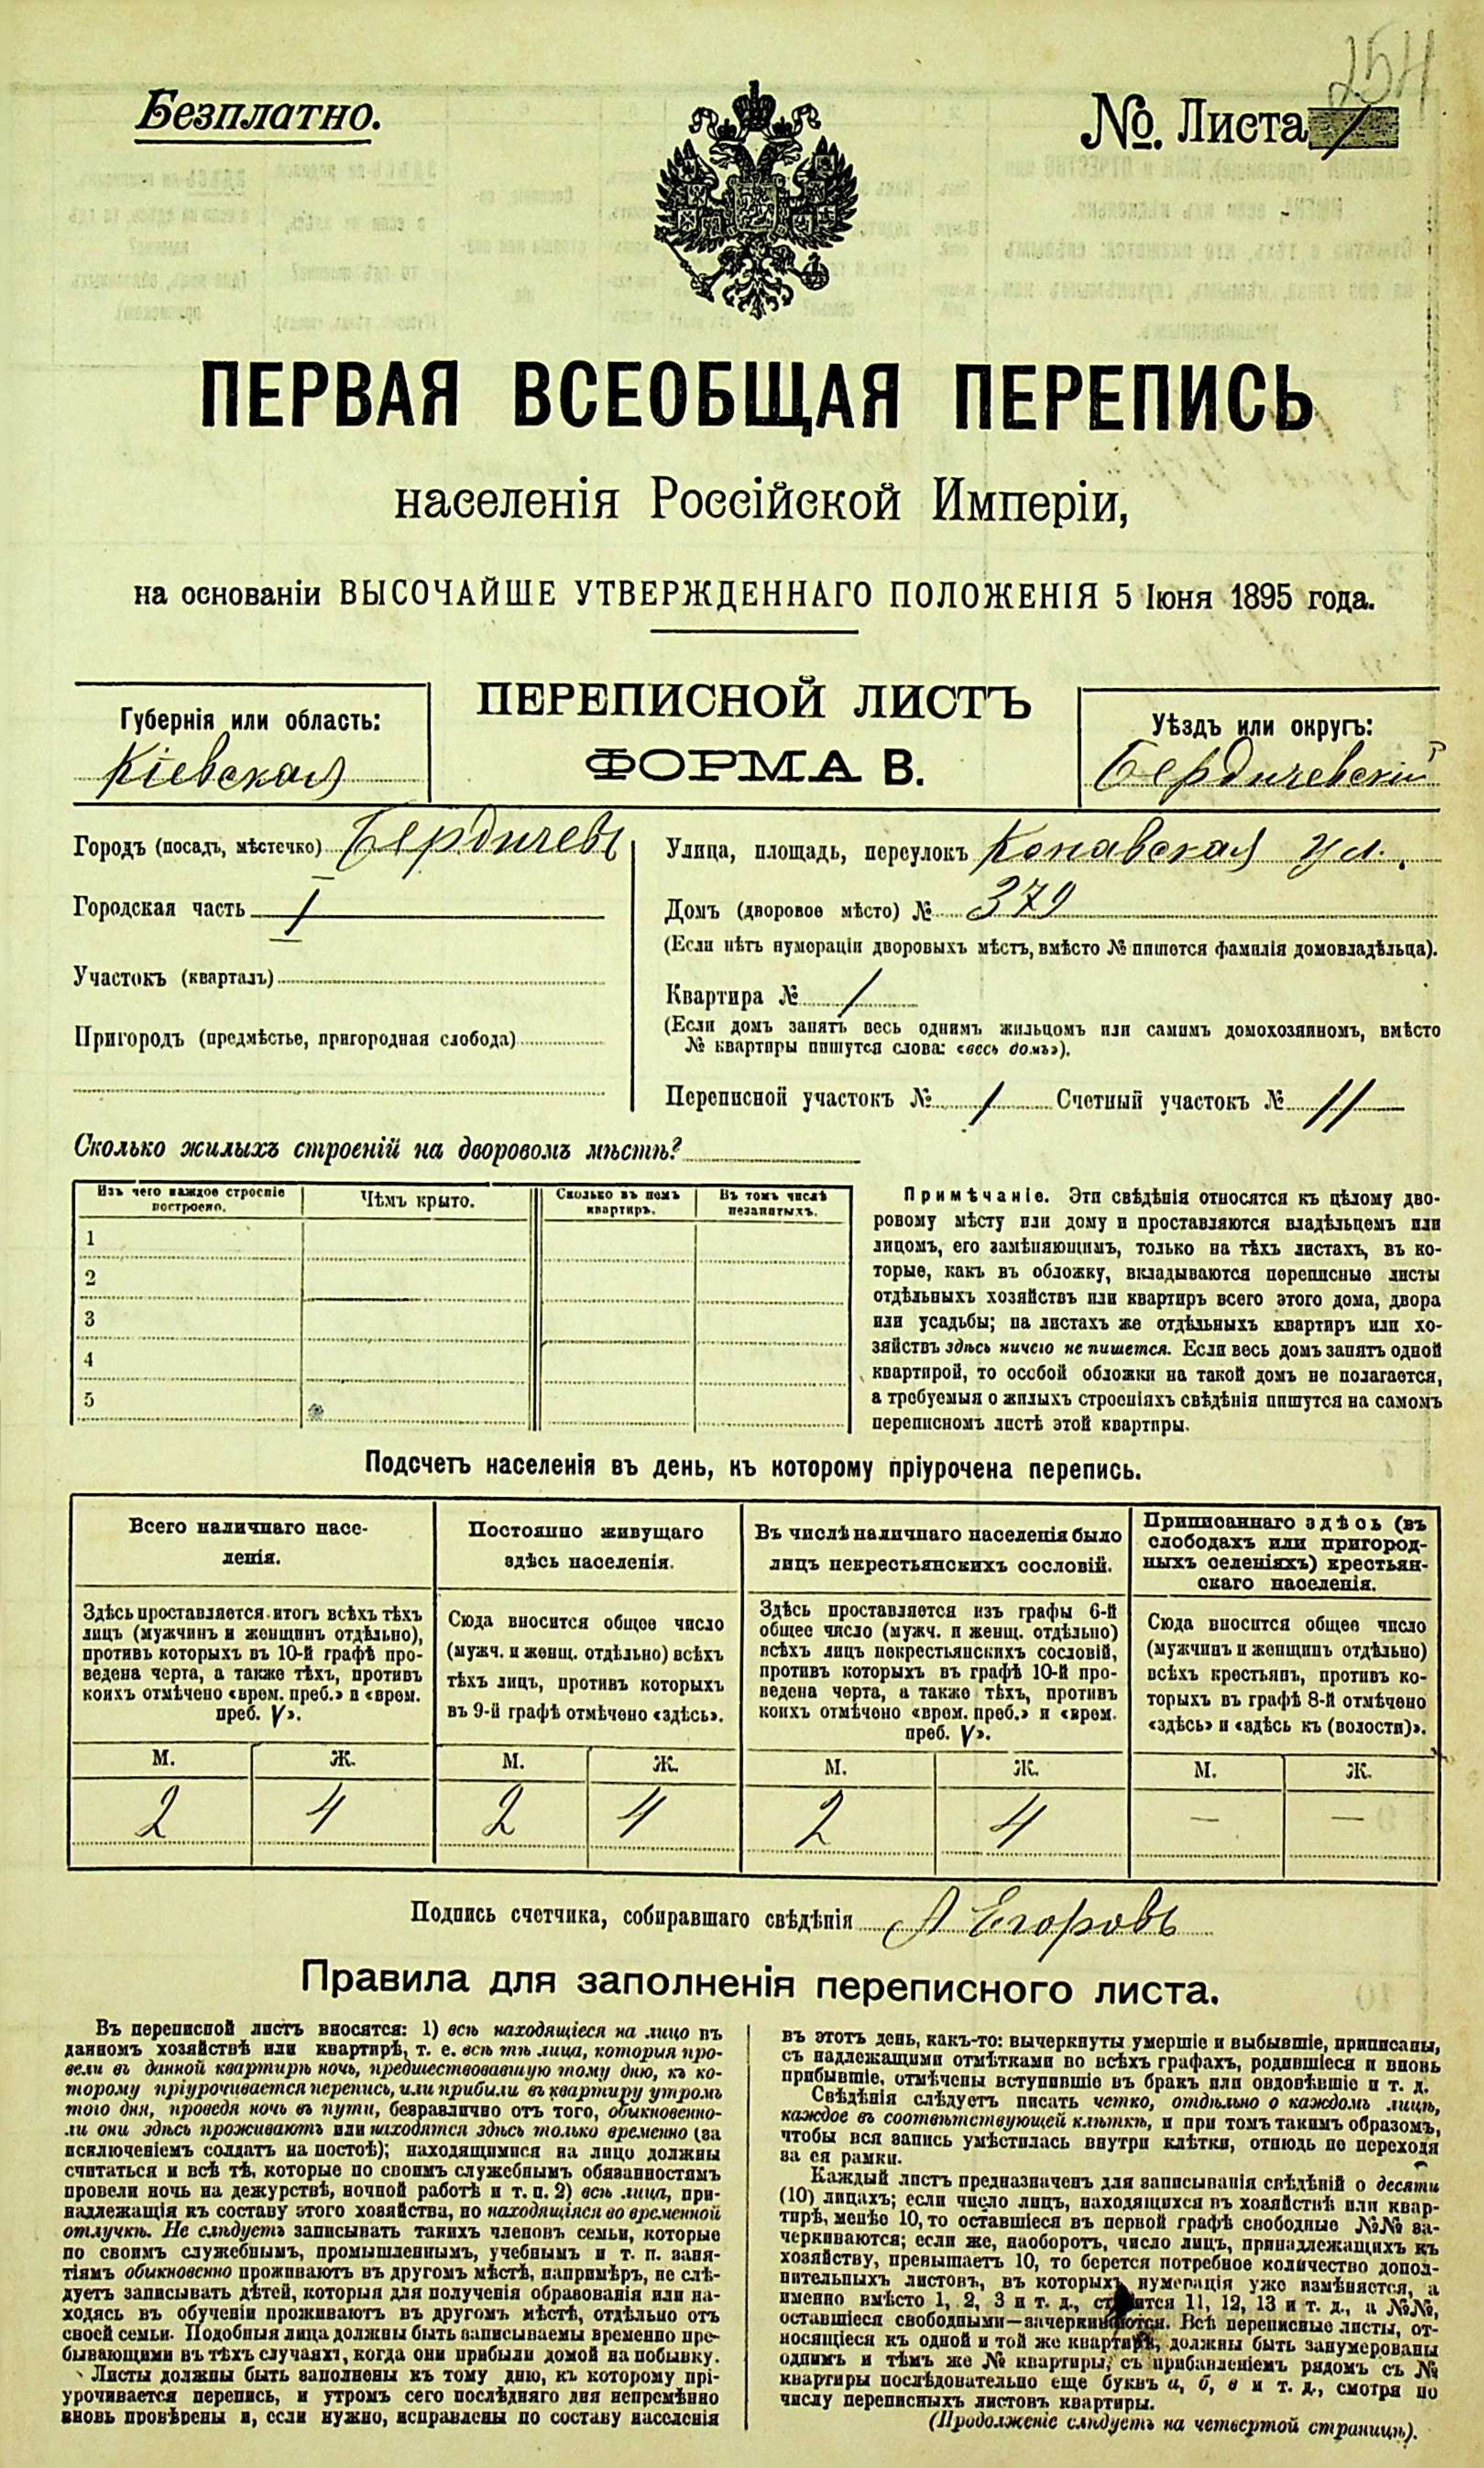 254
Безплатно.
№. Листа 1
ПЕРВАЯ ВСЕОБЩАЯ ПЕРЕПИСЬ
населенія Россійской Имперіи,
на основаніи ВЫСОЧАЙШЕ УТВЕРЖДЕННАГО ПОЛОЖЕНІЯ 5 Іюня 1895 года.
ПЕРЕПИСНОЙ ЛИСТЪ
ФОРМА В.
Губернія или область:
Кіевская
Уѣздъ или округъ:
Бердичевскій
Городъ (посадъ, мѣстечко) Бердичевъ
Городская часть I
Участокъ (кварталъ)
Пригородъ (предмѣстье, пригородная слобода)
Улица, площадь, переулокъ Копавская ул.
Домъ (дворовое мѣсто) № 379
(Если нѣтъ нумераціи дворовыхъ мѣстъ, вмѣсто № пишется фамилія домовладѣльца).
Квартира № 1
(Если домъ занятъ весь однимъ жильцомъ или самимъ домохозяиномъ, вмѣсто
№ квартиры пишутся слова: «весь домъ»).
Переписной участокъ № 1 Счетный участокъ № 11
Сколько жилыхъ строеній на дворовомъ мѣстѣ?
Изъ чего каждое строеніе
построено.
Чѣмъ крыто.
Сколько въ немъ
квартиръ.
Въ томъ числѣ
незанятыхъ.
1
2
3
4
5
Примѣчаніе. Эти свѣдѣнія относятся къ цѣлому дво-
ровому мѣсту или дому и проставляются владѣльцемъ или
лицомъ, его замѣняющимъ, только на тѣхъ листахъ, въ ко-
торые, какъ въ обложку, вкладываются переписные листы
отдѣльныхъ хозяйствъ или квартиръ всего этого дома, двора
или усадьбы; на листахъ же отдѣльныхъ квартиръ или хо-
зяйствъ здѣсь ничего не пишется. Если весь домъ занятъ одной
квартирой, то особой обложки на такой домъ не полагается,
а требуемыя о жилыхъ строеніяхъ свѣдѣнія пишутся на самомъ
переписномъ листѣ этой квартиры.
Подсчетъ населенія въ день, къ которому пріурочена перепись.
Всего наличнаго насе-
ленія.
Здѣсь проставляется итогъ всѣхъ тѣхъ
лицъ (мужчинъ и женщинъ отдѣльно),
противъ которыхъ въ 10-й графѣ про-
ведена черта, а также тѣхъ, противъ
коихъ отмѣчено «врем. преб.» и «врем.
преб. V».
Постоянно живущаго
здѣсь населенія.
Сюда вносится общее число
(мужч. и женщ. отдѣльно) всѣхъ
тѣхъ лицъ, противъ которыхъ
въ 9-й графѣ отмѣчено «здѣсь».
Въ числѣ наличнаго населенія было
лицъ некрестьянскихъ сословій.
Здѣсь проставляется изъ графы 6-й
общее число (мужч. и женщ. отдѣльно)
всѣхъ лицъ некрестьянскихъ сословій,
противъ которыхъ въ графѣ 10-й про-
ведена черта, а также тѣхъ, противъ
коихъ отмѣчено «врем. преб.» и «врем.
преб. V».
Приписаннаго здѣсь (въ
слободахъ или пригород-
ныхъ селеніяхъ) крестьян-
скаго населенія.
Сюда вносится общее число
(мужчинъ и женщинъ отдѣльно)
всѣхъ крестьянъ, противъ ко-
торыхъ въ графѣ 8-й отмѣчено
«здѣсь» и «здѣсь къ (волости)».
М. Ж. М. Ж. М. Ж. М. Ж.
2 4 2 4 2 4 — —
Подпись счетчика, собиравшаго свѣдѣнія А Егоровъ
Правила для заполненія переписного листа.
Въ переписной листъ вносятся: 1) всѣ находящіеся на лицо въ
данномъ хозяйствѣ или квартирѣ, т. е. всѣ тѣ лица, которыя про-
вели въ данной квартирѣ ночь, предшествовавшую тому дню, къ ко-
торому пріурочивается перепись, или прибыли въ квартиру утромъ
того дня, проведя ночь въ пути, безразлично отъ того, обыкновенно-
ли они здѣсь проживаютъ или находятся здѣсь только временно (за
исключеніемъ солдатъ на постоѣ); находящимися на лицо должны
считаться и всѣ тѣ, которые по своимъ служебнымъ обязанностямъ
провели ночь на дежурствѣ, ночной работѣ и т. п. 2) всѣ лица, при-
надлежащія къ составу этого хозяйства, но находящіяся во временной
отлучкѣ. Не слѣдуетъ записывать такихъ членовъ семьи, которые
по своимъ служебнымъ, промышленнымъ, учебнымъ и т. п. заня-
тіямъ обыкновенно проживаютъ въ другомъ мѣстѣ, напримѣръ, не слѣ-
дуетъ записывать дѣтей, которыя для полученія образованія или на-
ходясь въ обученіи проживаютъ въ другомъ мѣстѣ, отдѣльно отъ
своей семьи. Подобныя лица должны быть записываемы временно пре-
бывающими въ тѣхъ случаяхъ, когда они прибыли домой на побывку.
Листы должны быть заполнены къ тому дню, къ которому прі-
урочивается перепись, и утромъ сего послѣдняго дня непремѣнно
вновь провѣрены и, если нужно, исправлены по составу населенія
въ этотъ день, какъ-то: вычеркнуты умершіе и выбывшіе, приписаны,
съ надлежащими отмѣтками во всѣхъ графахъ, родившіеся и вновь
прибывшіе, отмѣчены вступившіе въ бракъ или овдовѣвшіе и т. д.
Свѣдѣнія слѣдуетъ писать четко, отдѣльно о каждомъ лицѣ,
каждое въ соотвѣтствующей клѣткѣ, и при томъ такимъ образомъ,
чтобы вся запись умѣстилась внутри клѣтки, отнюдь не переходя
за ея рамки.
Каждый листъ предназначенъ для записыванія свѣдѣній о десяти
(10) лицахъ; если число лицъ, находящихся въ хозяйствѣ или квар-
тирѣ, менѣе 10, то оставшіеся въ первой графѣ свободные №№ за-
черкиваются; если же, наоборотъ, число лицъ, принадлежащихъ къ
хозяйству, превышаетъ 10, то берется потребное количество допол-
нительныхъ листовъ, въ которыхъ нумерація уже измѣняется, а
именно вмѣсто 1, 2, 3 и т. д., ставится 11, 12, 13 и т. д., а №№,
оставшіеся свободными—зачеркиваются. Всѣ переписные листы, от-
носящіеся къ одной и той же квартирѣ, должны быть занумерованы
однимъ и тѣмъ же № квартиры, съ прибавленіемъ рядомъ съ №
квартиры послѣдовательно еще буквъ а, б, в и т. д., смотря по
числу переписныхъ листовъ квартиры.
(Продолженіе слѣдуетъ на четвертой страницѣ).